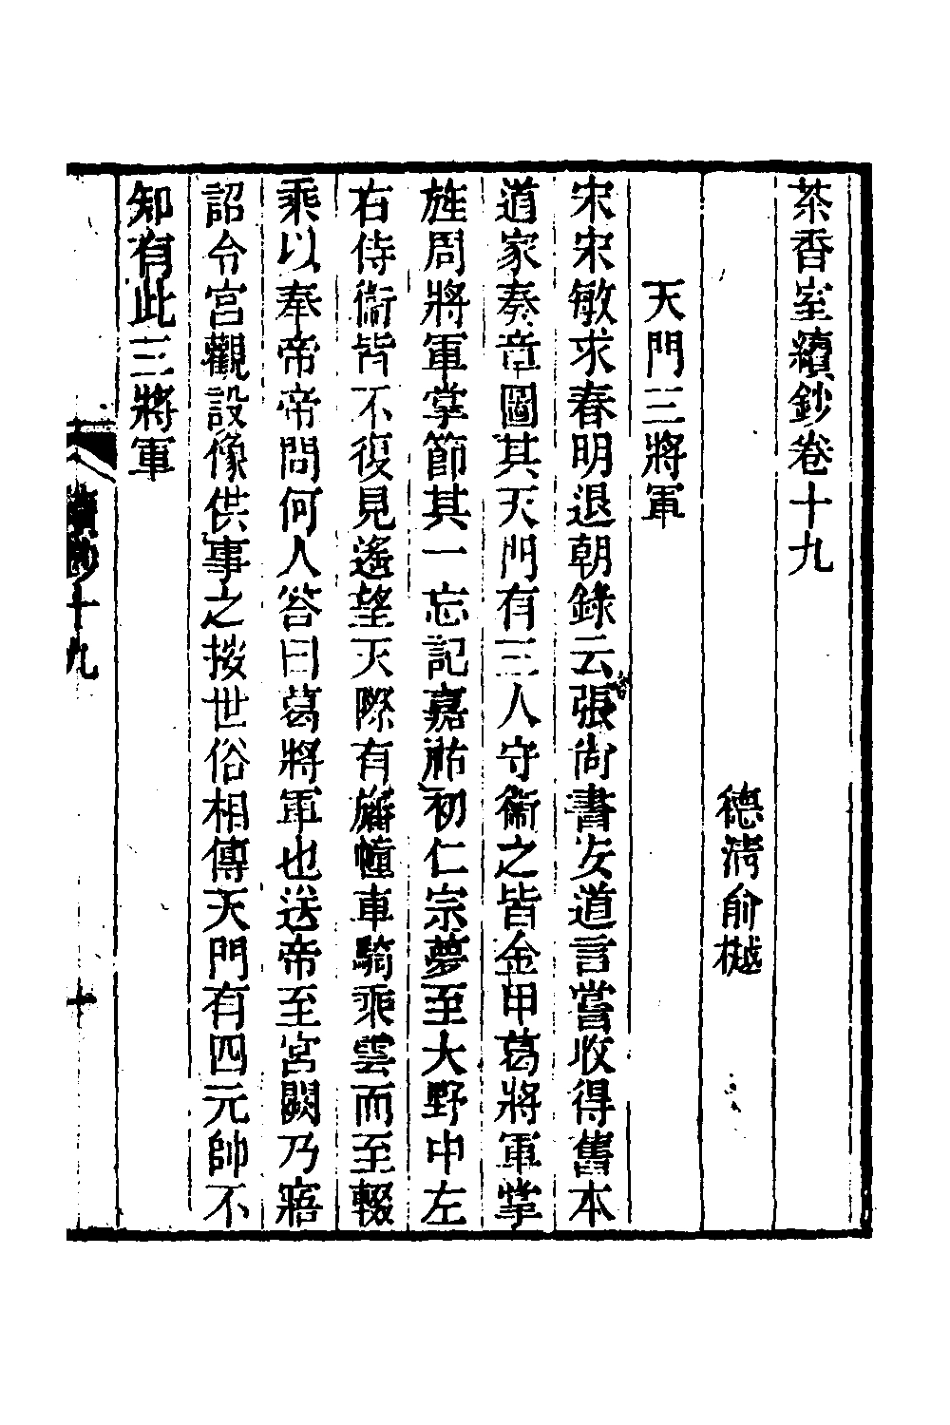 茶香室續鈔卷十九
德淸俞樾
天門三將軍
宋宋敏求春明退朝錄云張尙書安道言嘗收得舊本
道家奏章圖其天門有三人守衞之皆金甲葛將軍掌
旌周將軍掌節其一忘記嘉祐初仁宗夢至大野中左
右侍衞皆不復見遙望天際有旛幢車騎乘雲而至輟
乘以奉帝帝問何人答曰葛將軍也送帝至宮闕乃寤
詔令宮觀設像供事之按世俗相傳天門有四元帥不
知有此三將軍
續鈔十九
十